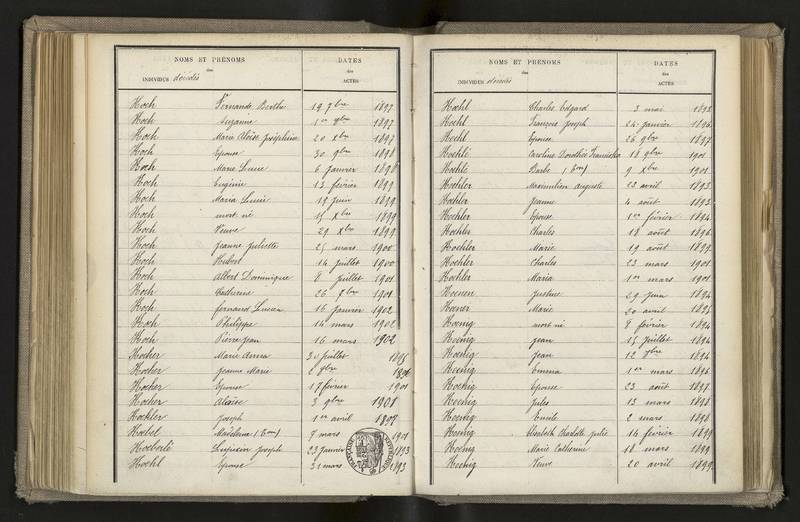 NOMS ET PRÉNOMS DATES
des des
INDIVIDUS décédés ACTES
Koch Fernande Berthe 19 9bre 1897
Koch Suzanne 1er 9bre 1897
Koch Marie Aloïse Joséphine 20 xbre 1897
Koch Epouse 30 9bre 1898
Koch Marie Louise 6 Janvier 1898
Koch Eugénie 13 février 1899
Koch Maria Lucie 19 juin 1899
Koch mort né 15 Xbre 1899
Koch Veuve 29 Xbre 1899
Koch Jeanne Juliette 25 mars 1900
Koch Hubert 14 juillet 1900
Koch Albert Dominique 8 juillet 1901
Koch Catherine 26 1901
Koch Fernand Lucien 16 Janvier 1902
Koch Philippe 14 mars 1902
Koch Pierre Jean 16 mars 1902
Kocher Marie Anna 30 juillet
Kocher Jeanne Marie
Kocher Epouse 17 février 1901
Kocher Aloïse 3 9bre 1901
Kockler Joseph 1er avril
Koebel Madeleine (Eve) 9 mars 1901
Koeberlé Joseph 23 Janvier 1893
Koehl Epouse 31 mars 1893
NOMS ET PRÉNOMS DATES
des des
INDIVIDUS décédés ACTES
Koehl Charles Edgard 3 mai 1893
Koehl François Joseph 24 janvier 1896
Koehl Epouse 26 9bre 1897
Koehlé Caroline Dorothée Franciska 18 9bre 1901
Koehlé Barbe (Eve) 9 Xbre 1901
Koehler Maximilien Auguste 23 avril 1893
Koehler Jeanne 4 août 1893
Koehler Epouse 1er février 1894
Koehler Charles 18 août 1896
Koehler Marie 19 août 1897
Koehler Charles 23 mars 1901
Koehler Maria 1er mars 1901
Koenen Justine 29 juin 1894
Koener Marie 20 avril 1895
Koenig mort né 9 février 1894
Koenig Jean 15 juillet 1894
Koenig Jean 12 9bre 1894
Koenig Emma 1er mars 1896
Koenig Epouse 23 août 1897
Koenig Jules 13 mars 1898
Koenig Emile 2 mars 1898
Koenig Elisabeth Charlotte Julie 14 février 1899
Koenig Marie Catherine 18 mars 1899
Koenig Veuve 20 avril 1899